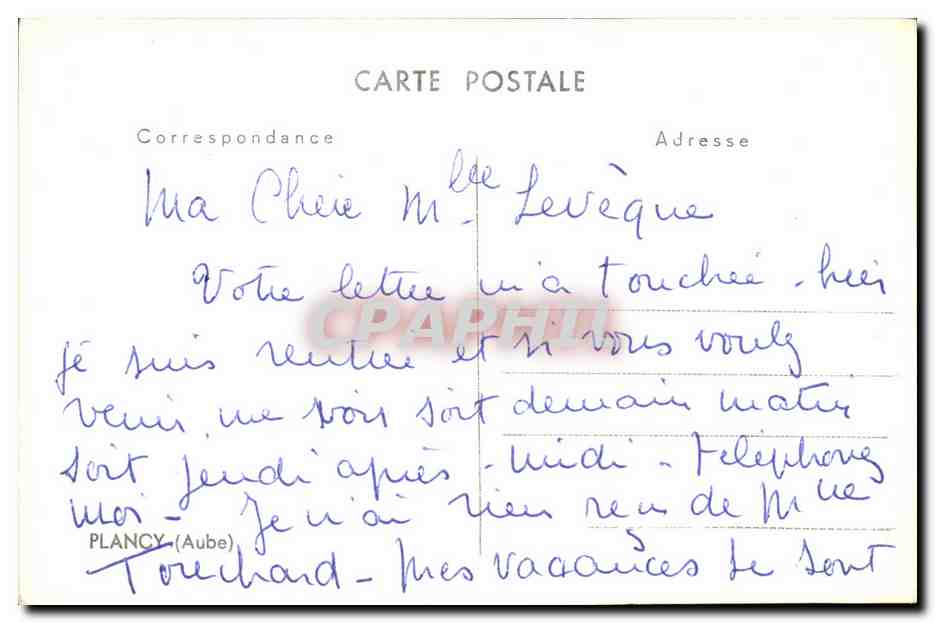 CARTE POSTALE
Correspondance Adresse
Ma Chère Mlle Levèque
Votre lettre m'a touchée - hier
je suis rentrée et si vous voulez
venir me voir soit demain matin
soit jeudi après-midi - téléphonez
moi - Je n'ai rien reçu de Mme
PLANCY (Aube)
Touchard - Mes vacances se sont
CPAPHIL